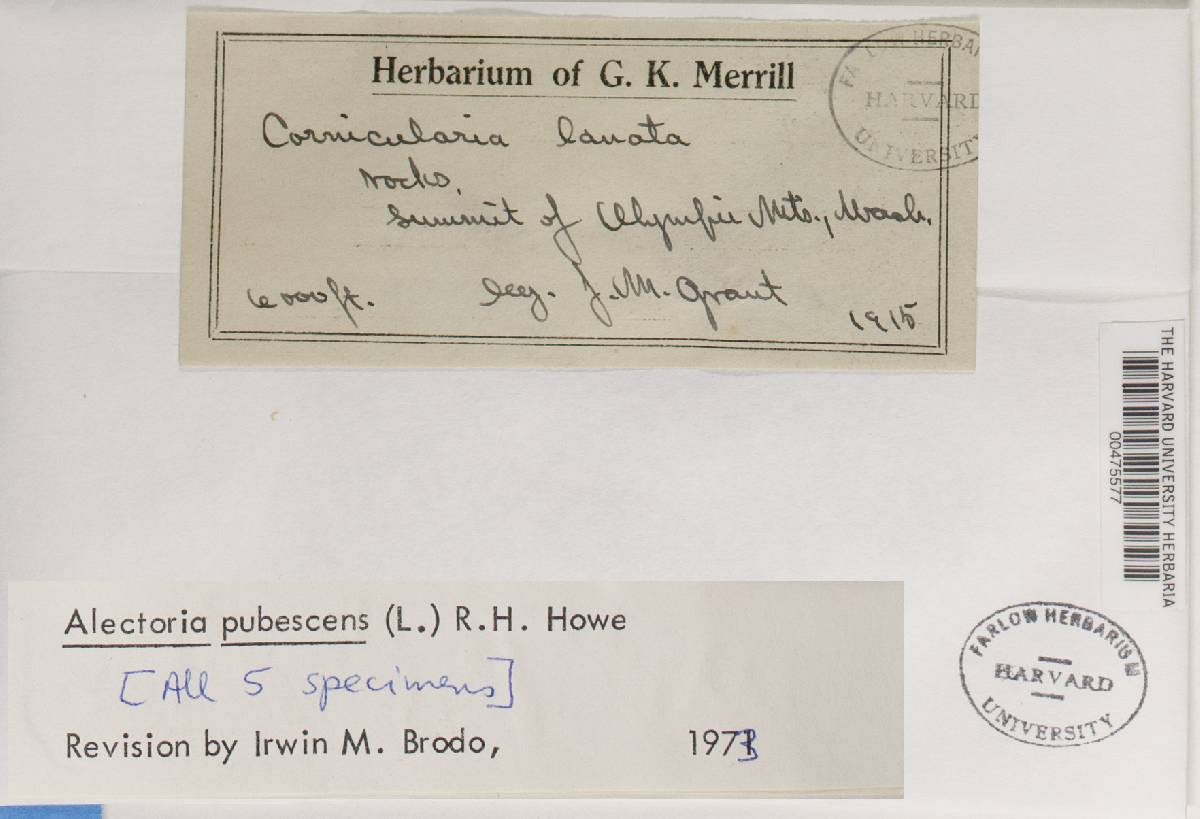 Herbarium of G. K. Merrill
Cornicularia lanata
rocks,
summit of Olympic Mts., Wash.
6000ft. leg. J. M. Grant
1915
FARLOW HERBA
HARVARD
UNIVERSITY
THE HARVARD UNIVERSITY HERBARIA
00475577
Alectoria pubescens (L.) R.H. Howe
[All 5 specimens]
Revision by Irwin M. Brodo, 1973
FARLOW HERBARIUM
HARVARD
UNIVERSITY